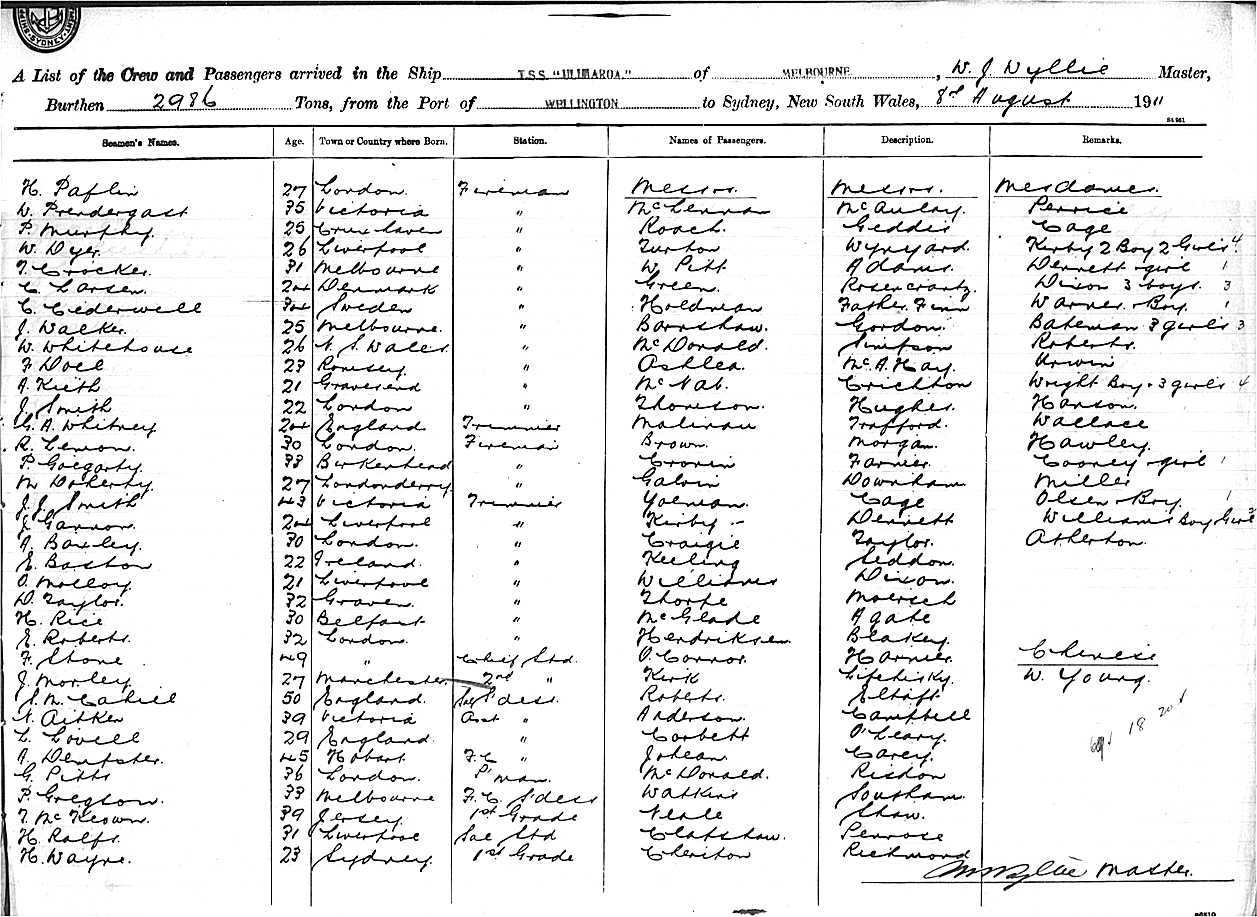 SYDNEY
A List of the Crew and Passengers arrived in the Ship T.S.S. "ULIMAROA." of MELBOURNE, W. J. Wyllie Master,
Burthen 2986 Tons, from the Port of WELLINGTON to Sydney, New South Wales, 8th August 1911
Seamen's Names. Age. Town or Country where Born. Station. Names of Passengers. Description. Remarks.
H. Paflin 27 London. Fireman Messrs. Messrs. Mesdames.
W. Prendergast 35 Victoria " McLennan McAulay. Penrice
P. Murphy. 25 " Roach. Geddis Cage
W. Dyer. 26 Liverpool " Turton Wynyard. Kirby 2 Boy 2 Girls 4
T. Crocker. 31 Melbourne " W. Pitt Adams. Dennett - girl 1
C. Larsen. 24 Denmark " Green. Rosencrantz. Dixon 3 boys. 3
C. Cederwell 34 Sweden " Holdman Father Finn Warner - Boy. 1
J. Walker. 25 Melbourne. " Barnshaw. Gordon. Bateman 3 girls 3
W. Whitehouse 26 N. S. Wales. " McDonald. Simpson Roberts.
F. Doel 23 Romsey. " Ashlea. McA. Hay. Urwin
A. Kieth 21 Gravesend " McNab. Crichton Wright Boy - 3 girls 4
J. Smith 22 London " Thomson. Hughes. Hanson.
G. A. Whitney 24 England Trimmer Malinau Trafford. Wallace
R. Lemon. 30 London. Fireman Brown. Morgan. Hawley.
P. Goegarty. 33 Birkenhead " Cronin Farmer. Cooney - girl 1
M. Doherty. 27 Londonderry " Galvin Downham Miller
J. J. Smith 43 Victoria Trimmer Yolman. Cage Olsen - Boy. 1
J. Gannon. 24 Liverpool " Kirby - Dennett Williams Boy Girls 3
A. Baxley. 30 London. " Craigie Taylor. Atherton.
E. Baston 22 Ireland. " Keeling Seddon.
O. Molloy. 21 Liverpool " Williams Dixon.
D. Taylor. 32 Graven. " Thorpe Moersch
H. Rice 30 Belfast " McGlade Agate
E. Roberts. 32 London. " Hendriksen Blakey.
F. Stone 49 " Chief Std. O'Connor. Harmer. Chinese
J. Morley. 27 Manchester. 2nd " Kirk Lipshisky. W. Young.
S. M. Cahill 50 England. Sal S'dess. Roberts.
N. Aitken 39 Victoria Asst " Anderson. Campbell
L. Lovell 29 England. " Corbett O'Leary.
A. Dempster. 45 Hobart. F.C. " Carey.
G. Pitts 36 London. P'man. McDonald. Risdon
P. Gregson. 33 Melbourne F.C. S'dess Watkins Southam.
T. McKeown. 39 Jersey. 1st Grade Neale Shaw.
H. Ralfs. 31 Liverpool Sal Std Clapshaw. Penrose
H. Wayne. 23 Sydney. 1st Grade Cheriton Richmond
W J Wyllie Master.